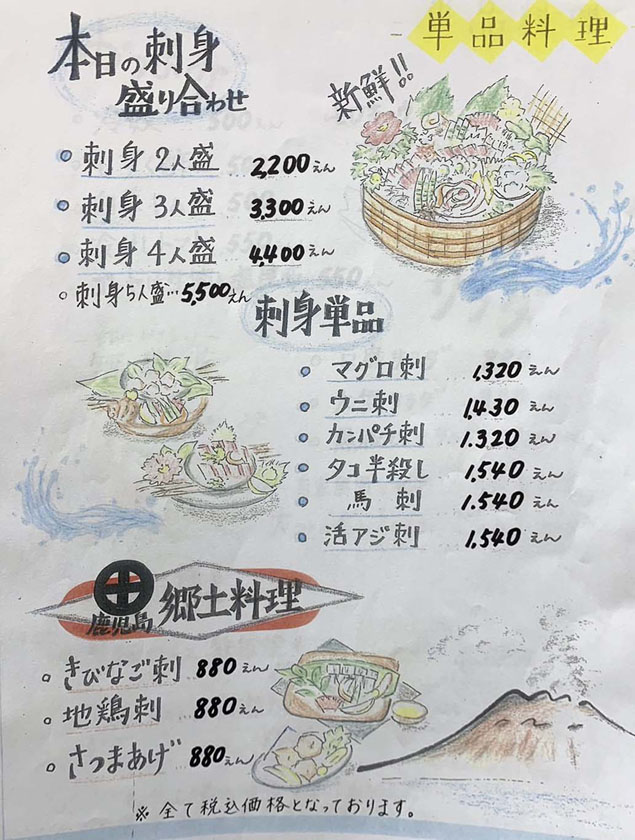 単品料理
本日の刺身
盛り合わせ
新鮮!!
刺身2人盛 2,200えん
刺身3人盛 3,300えん
刺身4人盛 4,400えん
刺身5人盛…5,500えん
刺身単品
マグロ刺 1,320えん
ウニ刺 1,430えん
カンパチ刺 1.320えん
タコ半殺し 1,540えん
馬刺 1.540えん
活アジ刺 1,540えん
鹿児島 郷土料理
きびなご刺 880えん
地鶏刺 880えん
さつまあげ 880えん
※全て税込価格となっております。